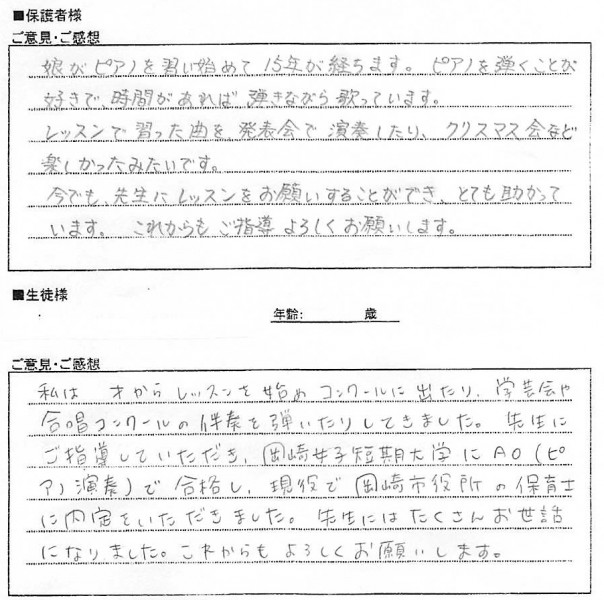 ■保護者様
ご意見・ご感想
娘がピアノを習い始めて15年が経ちます。ピアノを弾くことが
好きで、時間があれば弾きながら歌っています。
レッスンで習った曲を発表会で演奏したり、クリスマス会など
楽しかったみたいです。
今でも、先生にレッスンをお願いすることができ、とても助かって
います。 これからもご指導よろしくお願いします。
■生徒様
年齢: 歳
ご意見・ご感想
私は 才からレッスンを始めコンクールに出たり、学芸会や
合唱コンクールの伴奏を弾いたりしてきました。先生に
ご指導していただき、岡崎女子短期大学にAO(ピ
アノ演奏)で合格し、現役で岡崎市役所の保育士
に内定をいただきました。先生にはたくさんお世話
になりました。これからもよろしくお願いします。